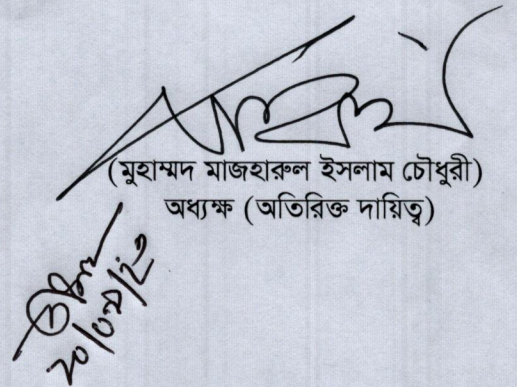 (মুহাম্মদ মাজহারুল ইসলাম চৌধুরী)
অধ্যক্ষ (অতিরিক্ত দায়িত্ব)